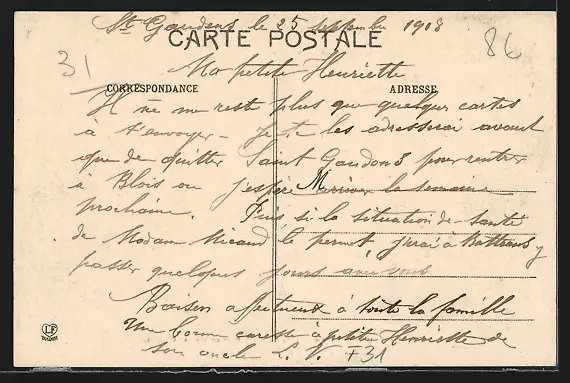 St Gaudens le 25 septembre 1918
CARTE POSTALE
86
31
Ma petite Henriette
CORRESPONDANCE
ADRESSE
Il ne me reste plus que quelques cartes
a t'envoyer - Je te les adresserai avant
que de quitter Saint Gaudens pour rentrer
à Blois ou j'espère arriver la semaine
prochaine. Puis si la situation de santé
de Madam le permet, j'irai à y
passer quelques jours avec vous
Baisers affectueux à toute la famille
Une bonne caresse à petite Henriette de
son oncle L. V.
F31
LF